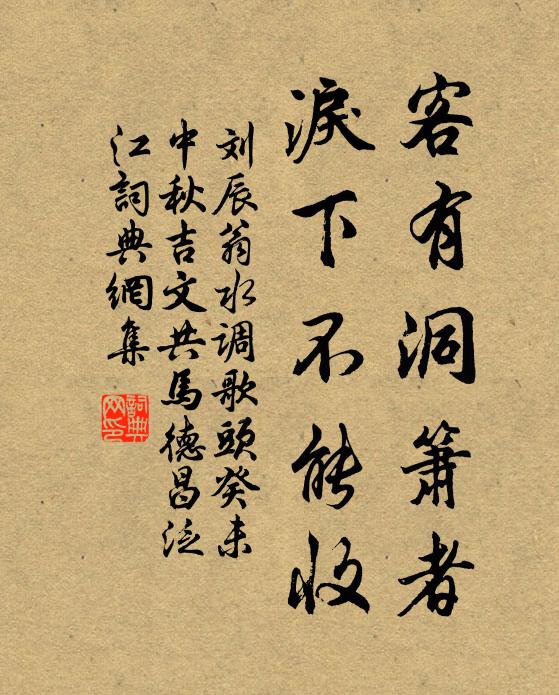 客有洞箫者
淚下不能收
刘辰翁水调歌頭癸未
中秋吉文共馬德昌泛
江詞典網集
詞典网印